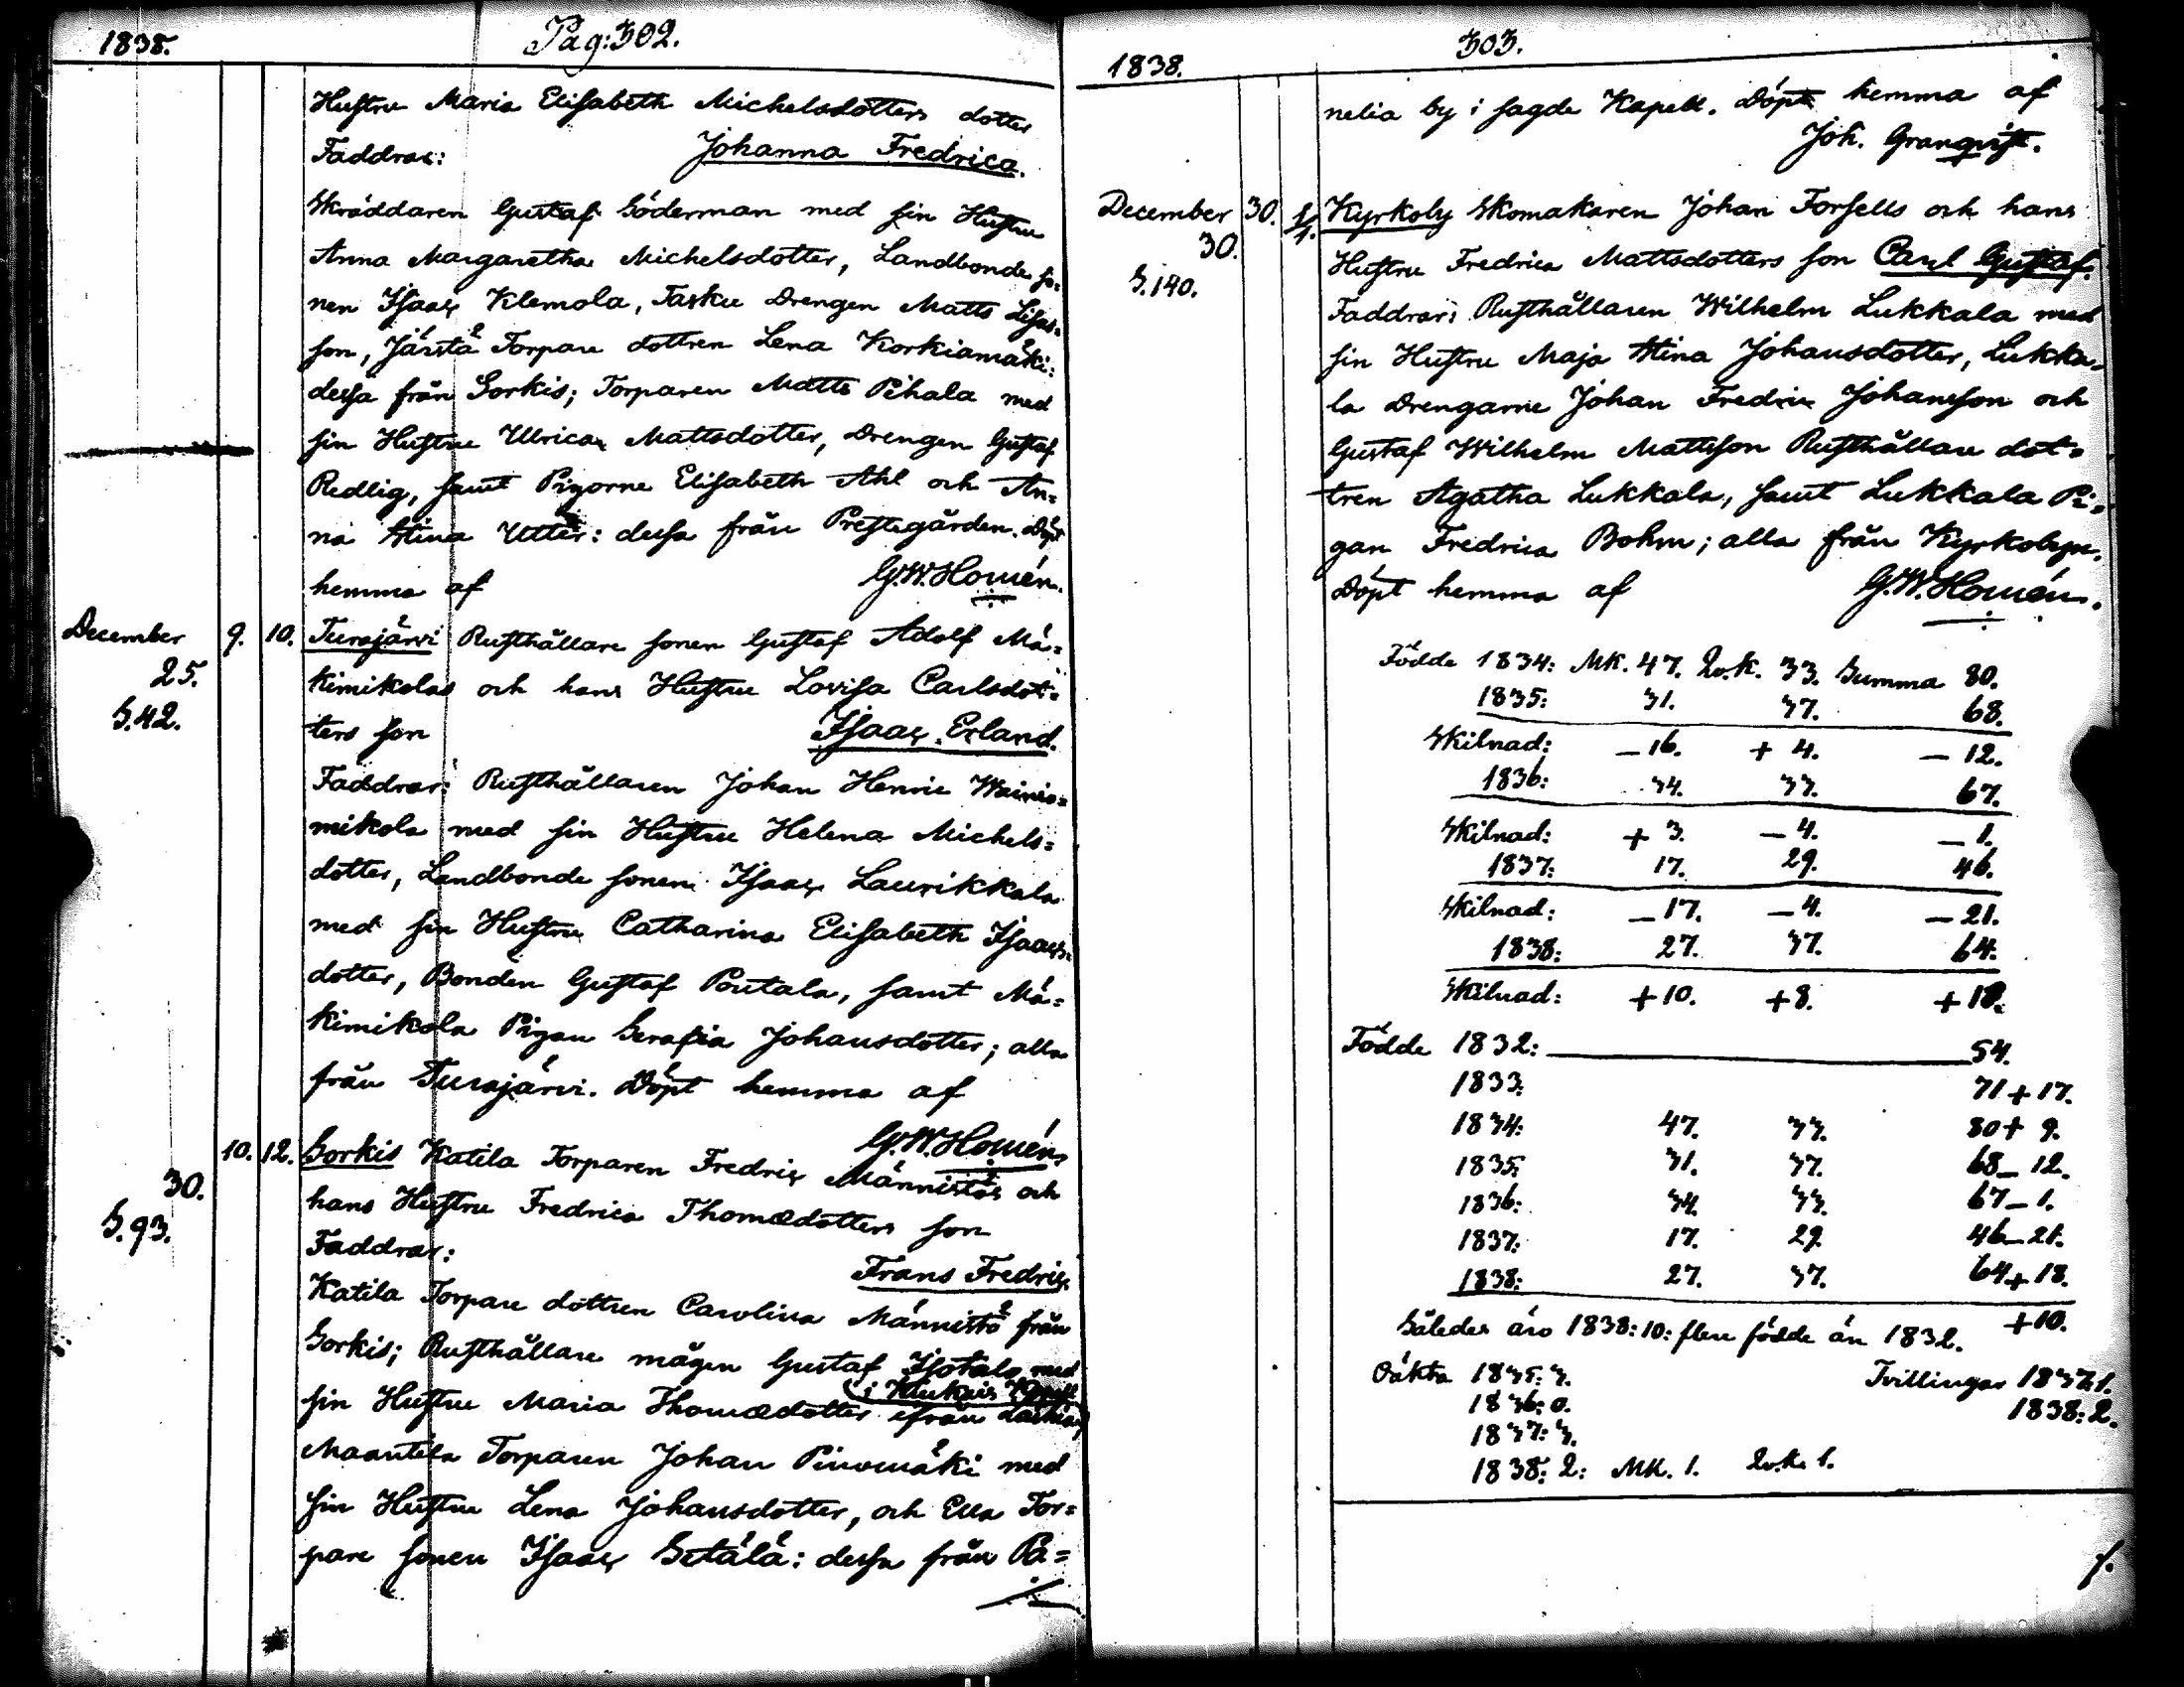 1838. Pag: 302.
Hustru Maria Elisabeth Michelsdotters dotter
Faddrar: Johanna Fredrica.
Skräddaren Gustaf Söderman med sin Hustru
Anna Margaretha Michelsdotter, Landbonde so=
nen Isaac Klemola, Tasku Drengen Matts
son, Järstä Torpare dottren Lena Korkiamäki:
dessa från Sorkis; Torparen Matts Pihala med
sin Hustru Ulrica Mattsdotter, Drengen Gustaf
Redlig, samt Pigorne Elisabeth Ahl och An=
na Stina Utter: dessa från Prestegården. Döpt
hemma af G.W. Homén.
December 9. 10. Turajärvi Rusthållare sonen Gustaf Adolf Mä=
25. kimikolas och hans Hustru Lovisa Carlsdot=
S.42. ters son Isaac Erland.
Faddrar: Rusthållaren Johan Henric Wainio=
mikola med sin Hustru Helena Michels=
dotter, Landbonde sonen Isaac Laurikkala
med sin Hustru Catharina Elisabeth Isaacs=
dotter, Bonden Gustaf Pontala, samt Mä=
kimikola Pigan Serafia Johansdotter; alla
från Turajärvi. Döpt hemma af
G.W. Homén.
10. 12. Sorkis Katila Torparen Fredric Männistös och
30. hans Hustru Fredrica Thomædotters son
S.93. Faddrar: Frans Fredric.
Katila Torpare dottren Carolina Männistö från
Sorkis; Rusthållare mågen Gustaf Isotalo med
sin Hustru Maria Thomædotter ifrån
Maantila Torparen Johan Pinomäki med
sin Hustru Lena Johansdotter, och Ella Tor=
pare sonen Isaac Setälä: dessa från Pa=
1838. 303.
nelia by i sagde Kapell. Döpt hemma af
Joh. Granqvist.
December 30. 1/1. Kyrkoby Skomakaren Johan Forsells och hans
30. Hustru Fredrica Mattsdotters son Carl Gustaf.
S.140. Faddrar: Rusthållaren Wilhelm Lukkala med
sin Hustru Maja Stina Johansdotter, Lukka=
la Drengarne Johan Fredric Johansson och
Gustaf Wilhelm Mattsson Rusthållare dot=
tren Agatha Lukkala, samt Lukkala Pi=
gan Fredrica Bohm; alla från Kyrkobyn.
Döpt hemma af G.W. Homén.
Födde 1834: MK. 47. Qv.k. 33. Summa 80.
1835: 31. 37. 68.
Skilnad: – 16. + 4. – 12.
1836: 34. 33. 67.
Skilnad: + 3. – 4. – 1.
1837: 17. 29. 46.
Skilnad: – 17. – 4. – 21.
1838: 27. 37. 64.
Skilnad: + 10. + 8. + 18.
Födde 1832: 54.
1833. 71 + 17.
1834: 47. 33. 80 + 9.
1835: 31. 37. 68 – 12.
1836: 34. 33. 67 – 1.
1837: 17. 29. 46 – 21.
1838: 27. 37. 64 + 18.
+ 10.
Således äro 1838: 10: flere födde än 1832.
Oäkta 1835: 3. Tvillingar 1837: 1.
1836: 0. 1838: 2.
1837: 3.
1838: 2: MK. 1. Qv.k. 1.